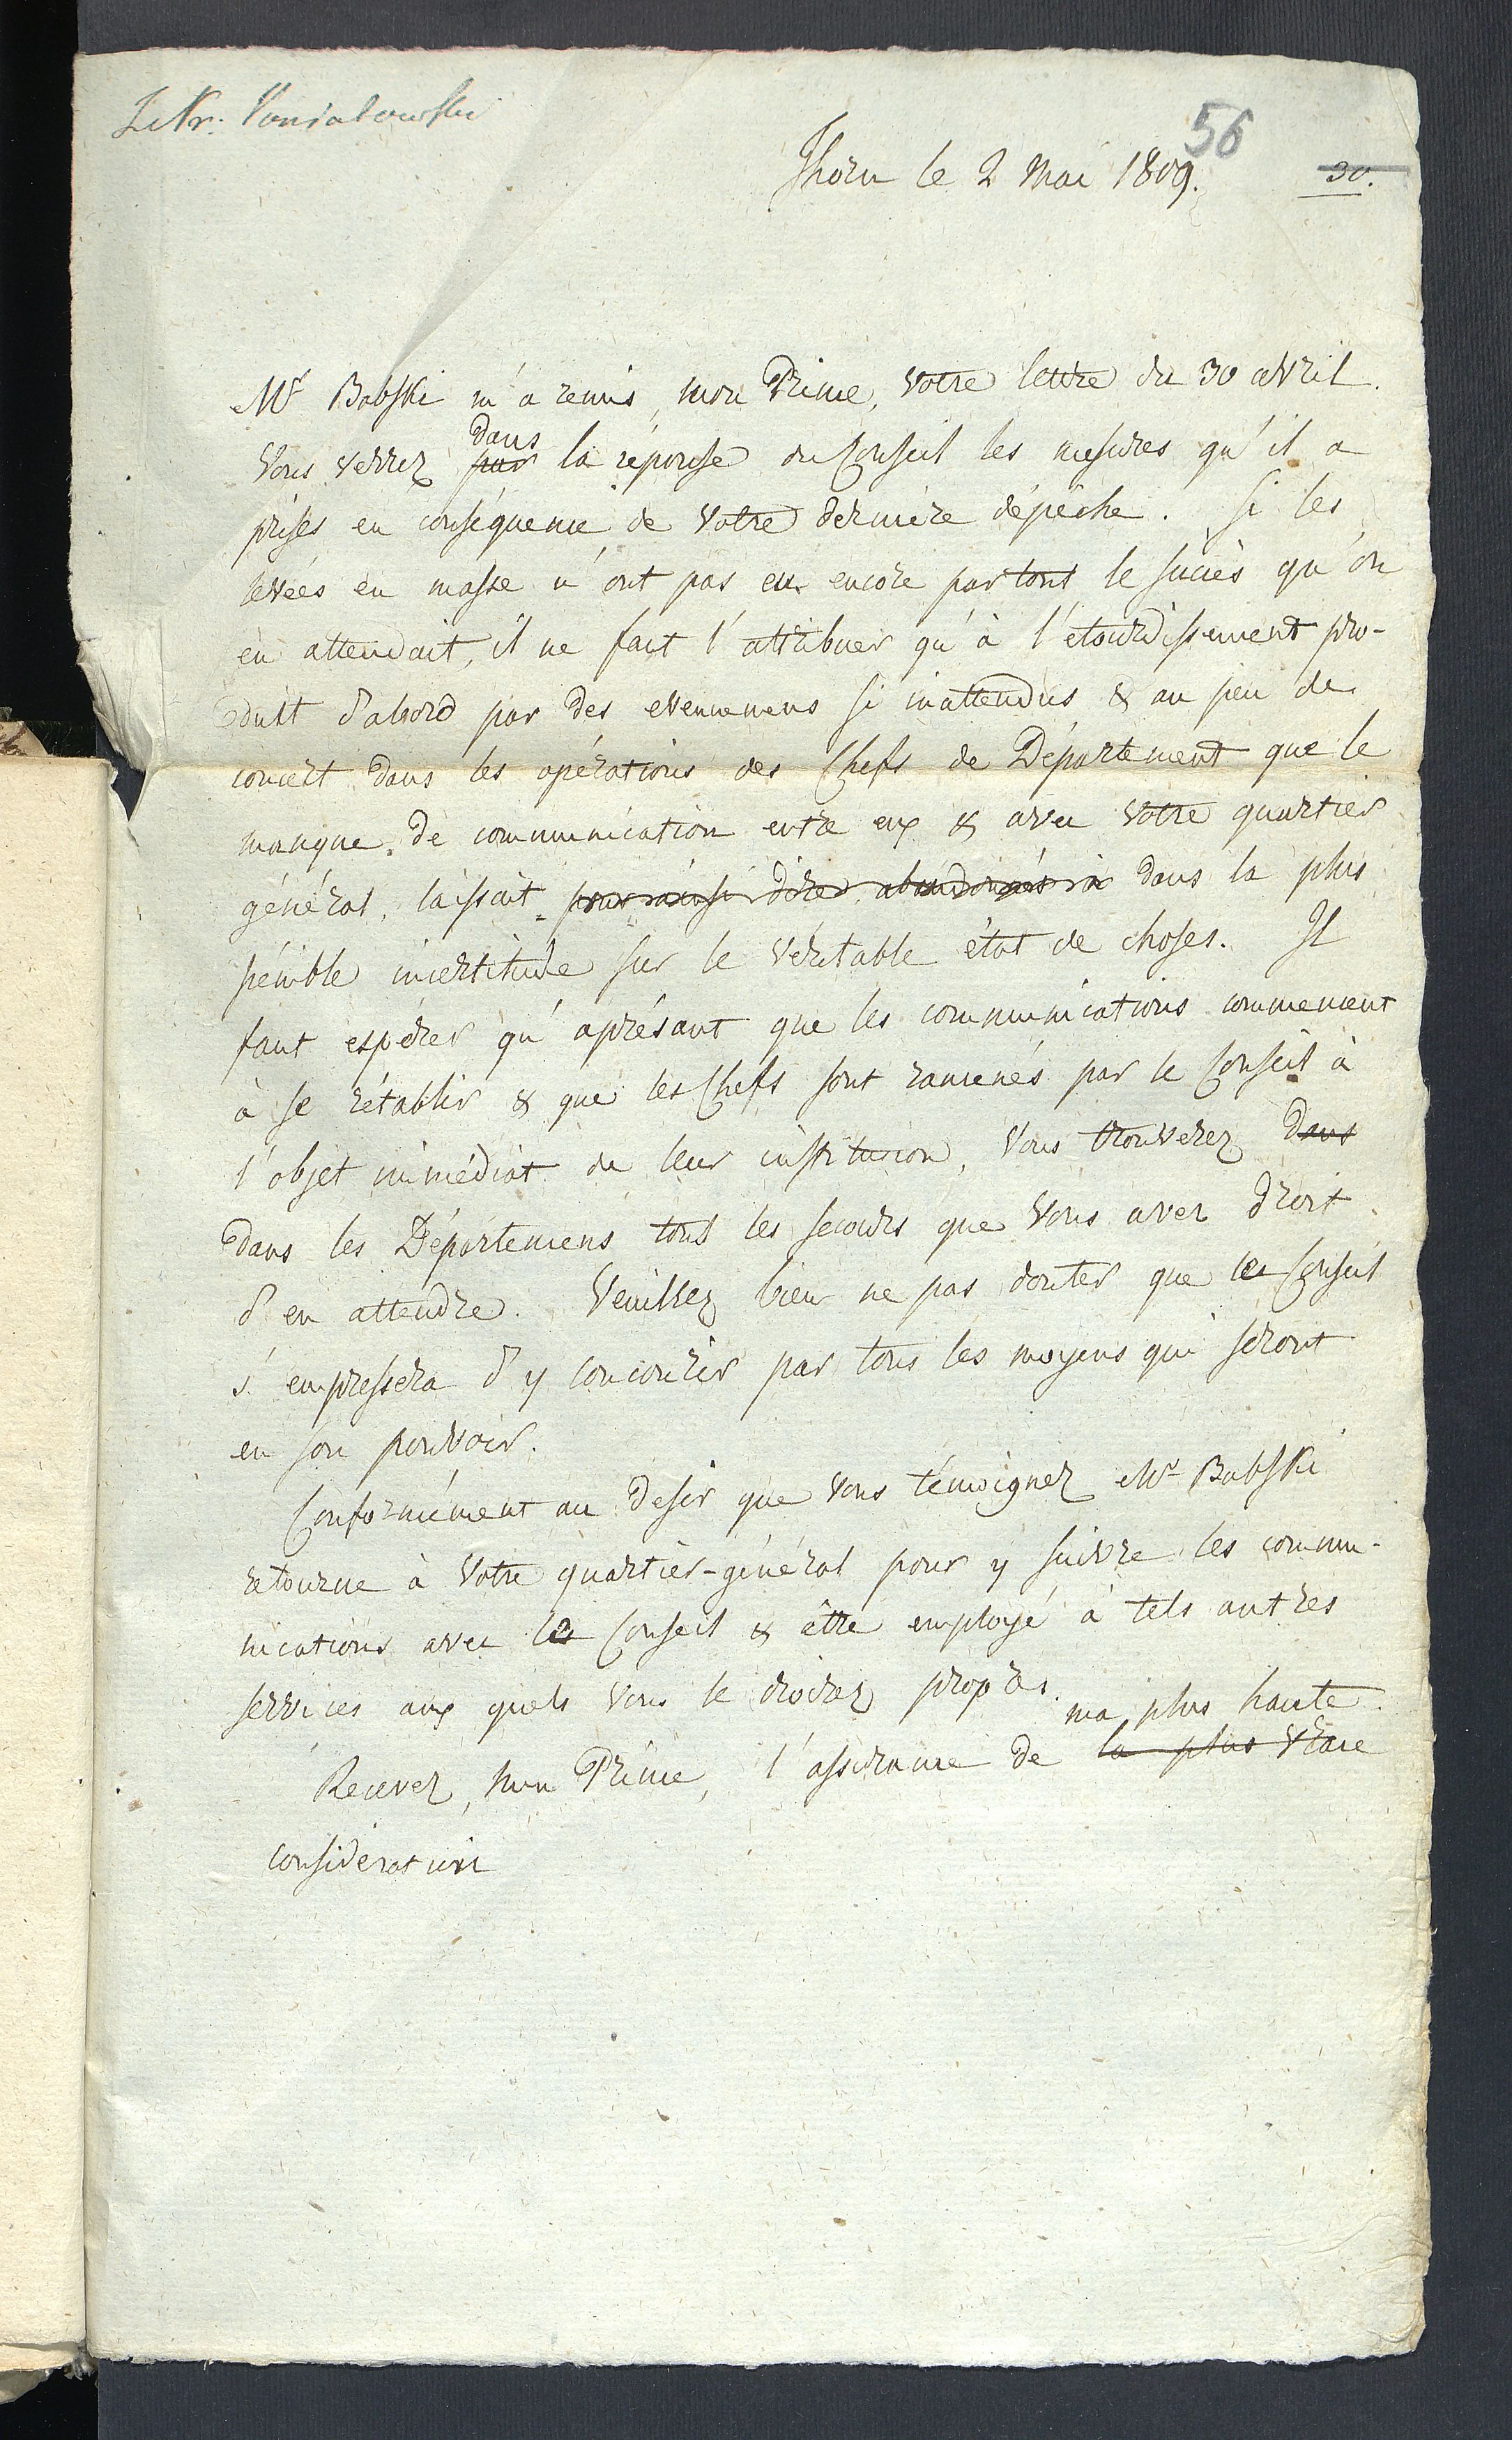 Poniatowski
56
Thorn le 2 Mai 1809.
30.
Mr Babski m'a remis, mon Prince, Votre lettre du 30 avril.
dans
Vous verrez par la réponse du Conseil les mesures qu'il a
prises en conséquence de Votre dernière dépêche. Si les
levées en masse n'ont pas eu encore partout le succès qu'on
en attendait, il ne faut l'attribuer qu'à l'etourdissement pro-
duit d'abord par des evenemens si inattendus & au peu de
concert dans les opérations des Chefs de Département que le
manque de communication entre eux & avec Votre quartier
général, laissait pour ainsi dire abandonnés à dans la plus
pénible incertitude sur le véritable état de choses. Il
faut espérer qu'aprésant que les communications commencent
à se rétablir & que les Chefs sont ramenés par le Conseil à
l'objet immédiat de leur institution, Vous trouverez dans
dans les Départemens tous les secours que Vous avez droit
d'en attendre. Veuillez bien ne pas douter que le Conseil
s'empressera d'y concourir par tous les moyens qui seront
en son pouvoir.
Conformément au desir que Vous témoignez Mr Babski
retourne à Votre quartier-général pour y suivre les commu-
nications avec le Conseil & être employé à tels autres
services aux quels Vous le croirez propres.
ma plus haute
Recevez, mon Prince, l'assurance de la plus vraie
consideration